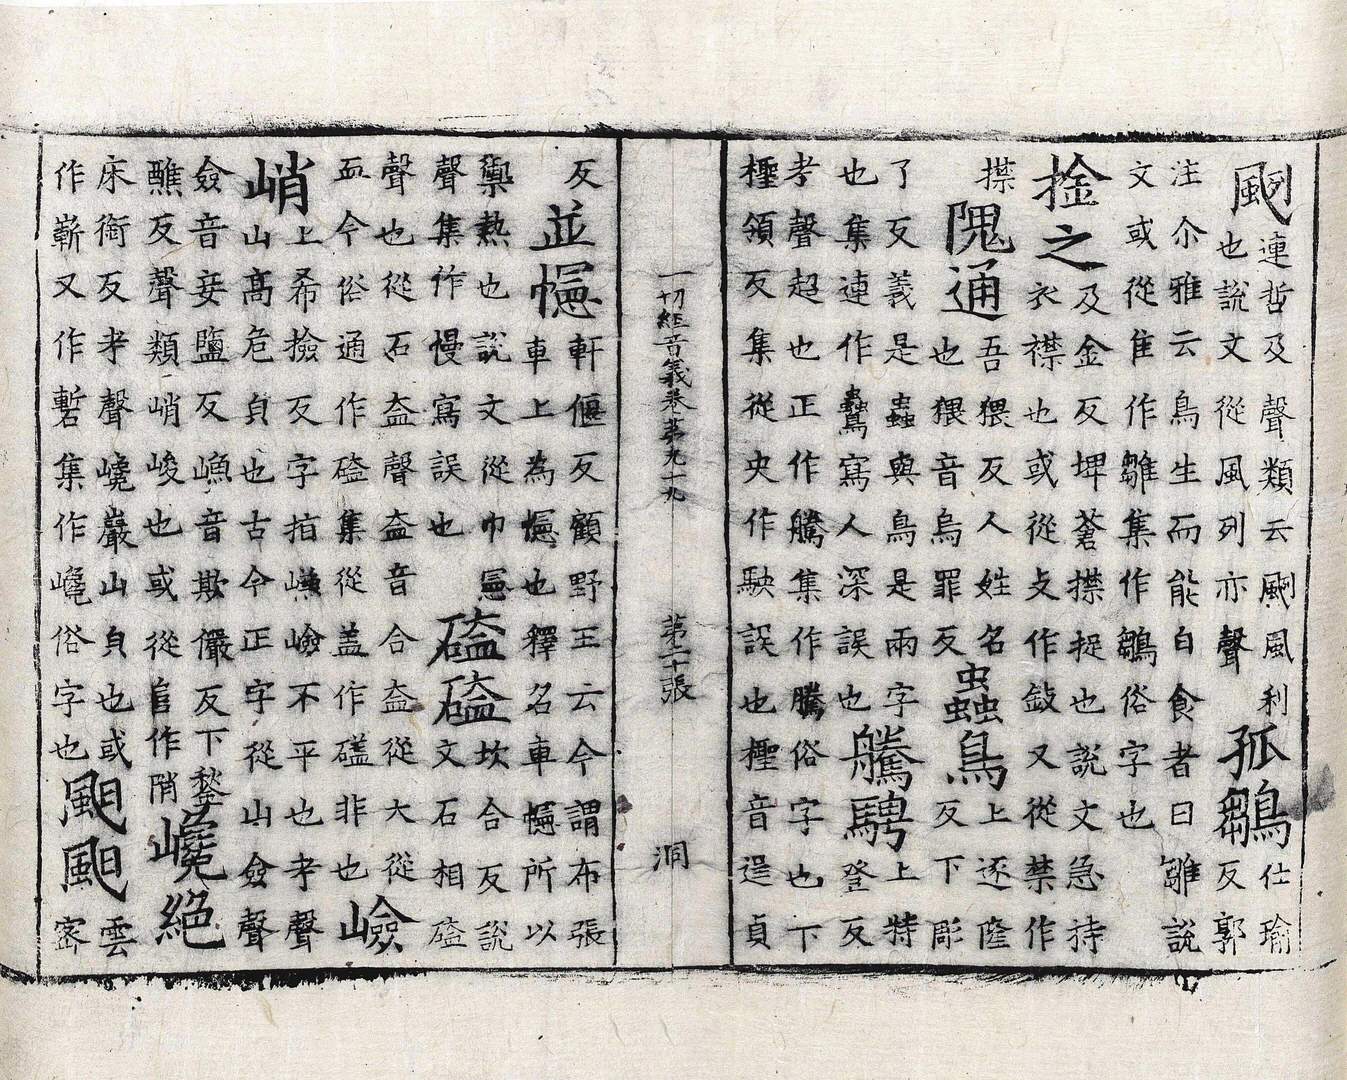 颲
連哲及聲類云颲風利
也說文從風列亦聲
孤鶵
仕瑜
反郭
注尒雅云鳥生而能自食者曰雛說
文或從隹作雛集作鶵俗字也
捦之
及金反埤蒼㩒捉也說文急持
衣襟也或從攴作㪁又從禁作
㩒
隗通
吾猥反人姓名
也猥音烏罪反
蟲鳥
上逐隆
反下彫
了反義是蟲與鳥是兩字
也集連作寫人深誤也
騰騁
上特
登反
考聲超也正作騰集作騰俗字也下
桱領反集從史作駛誤也桱音逞貞
一切經音義卷第九十九 第二十張 洞
反
並幰
軒偃反顧野王云今謂布張
車上為幰也釋名車幰所以
禦熱也說文從巾憲
聲集作幔寫誤也
礚礚
坎合反說
文石相礚
聲也從石盍聲盍音合盍從大從
血今俗通作磕集從盖作礚非也
嶮
峭
上希撿反字指嶮不平也考聲
山高危皃也古今正字從山僉聲
僉音妾鹽反音欺儼反下鍫
醮反聲類峭峻也或從𨸏作陗
巉絕
床銜反考聲巉巖山皃也或
作嶄又作嶃集作巉俗字也
䫻䫻
雲
密